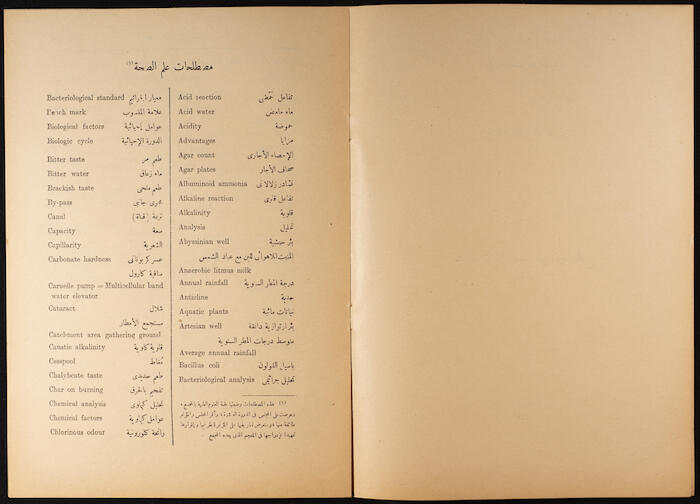 مصطلحات علم الصحة (١)
Acid reaction تفاعل حمضى
Acid water ماء حامض
Acidity حموضة
Advantages مزايا
Agar count الإحصاء الأجارى
Agar plates صحائف الأجار
Albuminoid ammonia نشادر زلالانى
Alkaline reaction تفاعل قلوى
Alkalinity قلوية
Analysis تحليل
Abyssinian well بئر حبشية
المنبت اللاهوائى للبن مع عباد الشمس
Anaerobic litmus milk
Annual rainfall درجة المطر السنوية
Anticline حدبة
Aquatic plants نباتات مائية
Artesian well بئر ارتوازية دافقة
متوسط درجات المطر السنوية
Average annual rainfall
Bacillus coli باسيل القولون
Bacteriological analysis تحليل جراثيمى
(١) هذه المصطلحات وضعتها لجنة
Bacteriological standard معيار الجراثيم
Bench mark علامة المنسوب
Biological factors عوامل إحيائية
Biologic cycle الدورة الإحيائية
Bitter taste طعم مر
Bitter water ماء زعاق
Brackish taste طعم ملحى
By-pass مجرى جانبى
Canal ترعة (قناة)
Capacity سعة
Capillarity الشعرية
Carbonate hardness عسر كربوناتى
ساقية كارول
Caruelle pump = Multicellular band
water elevator
Cataract شلال
مستجمع الأمطار
Catchment area gathering ground
Caustic alkalinity قلوية كاوية
Cesspool
Chalybeate taste طعم حديدى
Char on burning تفحيم بالحرق
Chemical analysis تحليل كيماوى
Chemical factors عوامل كيماوية
Chlorinous odour رائحة كلورونية